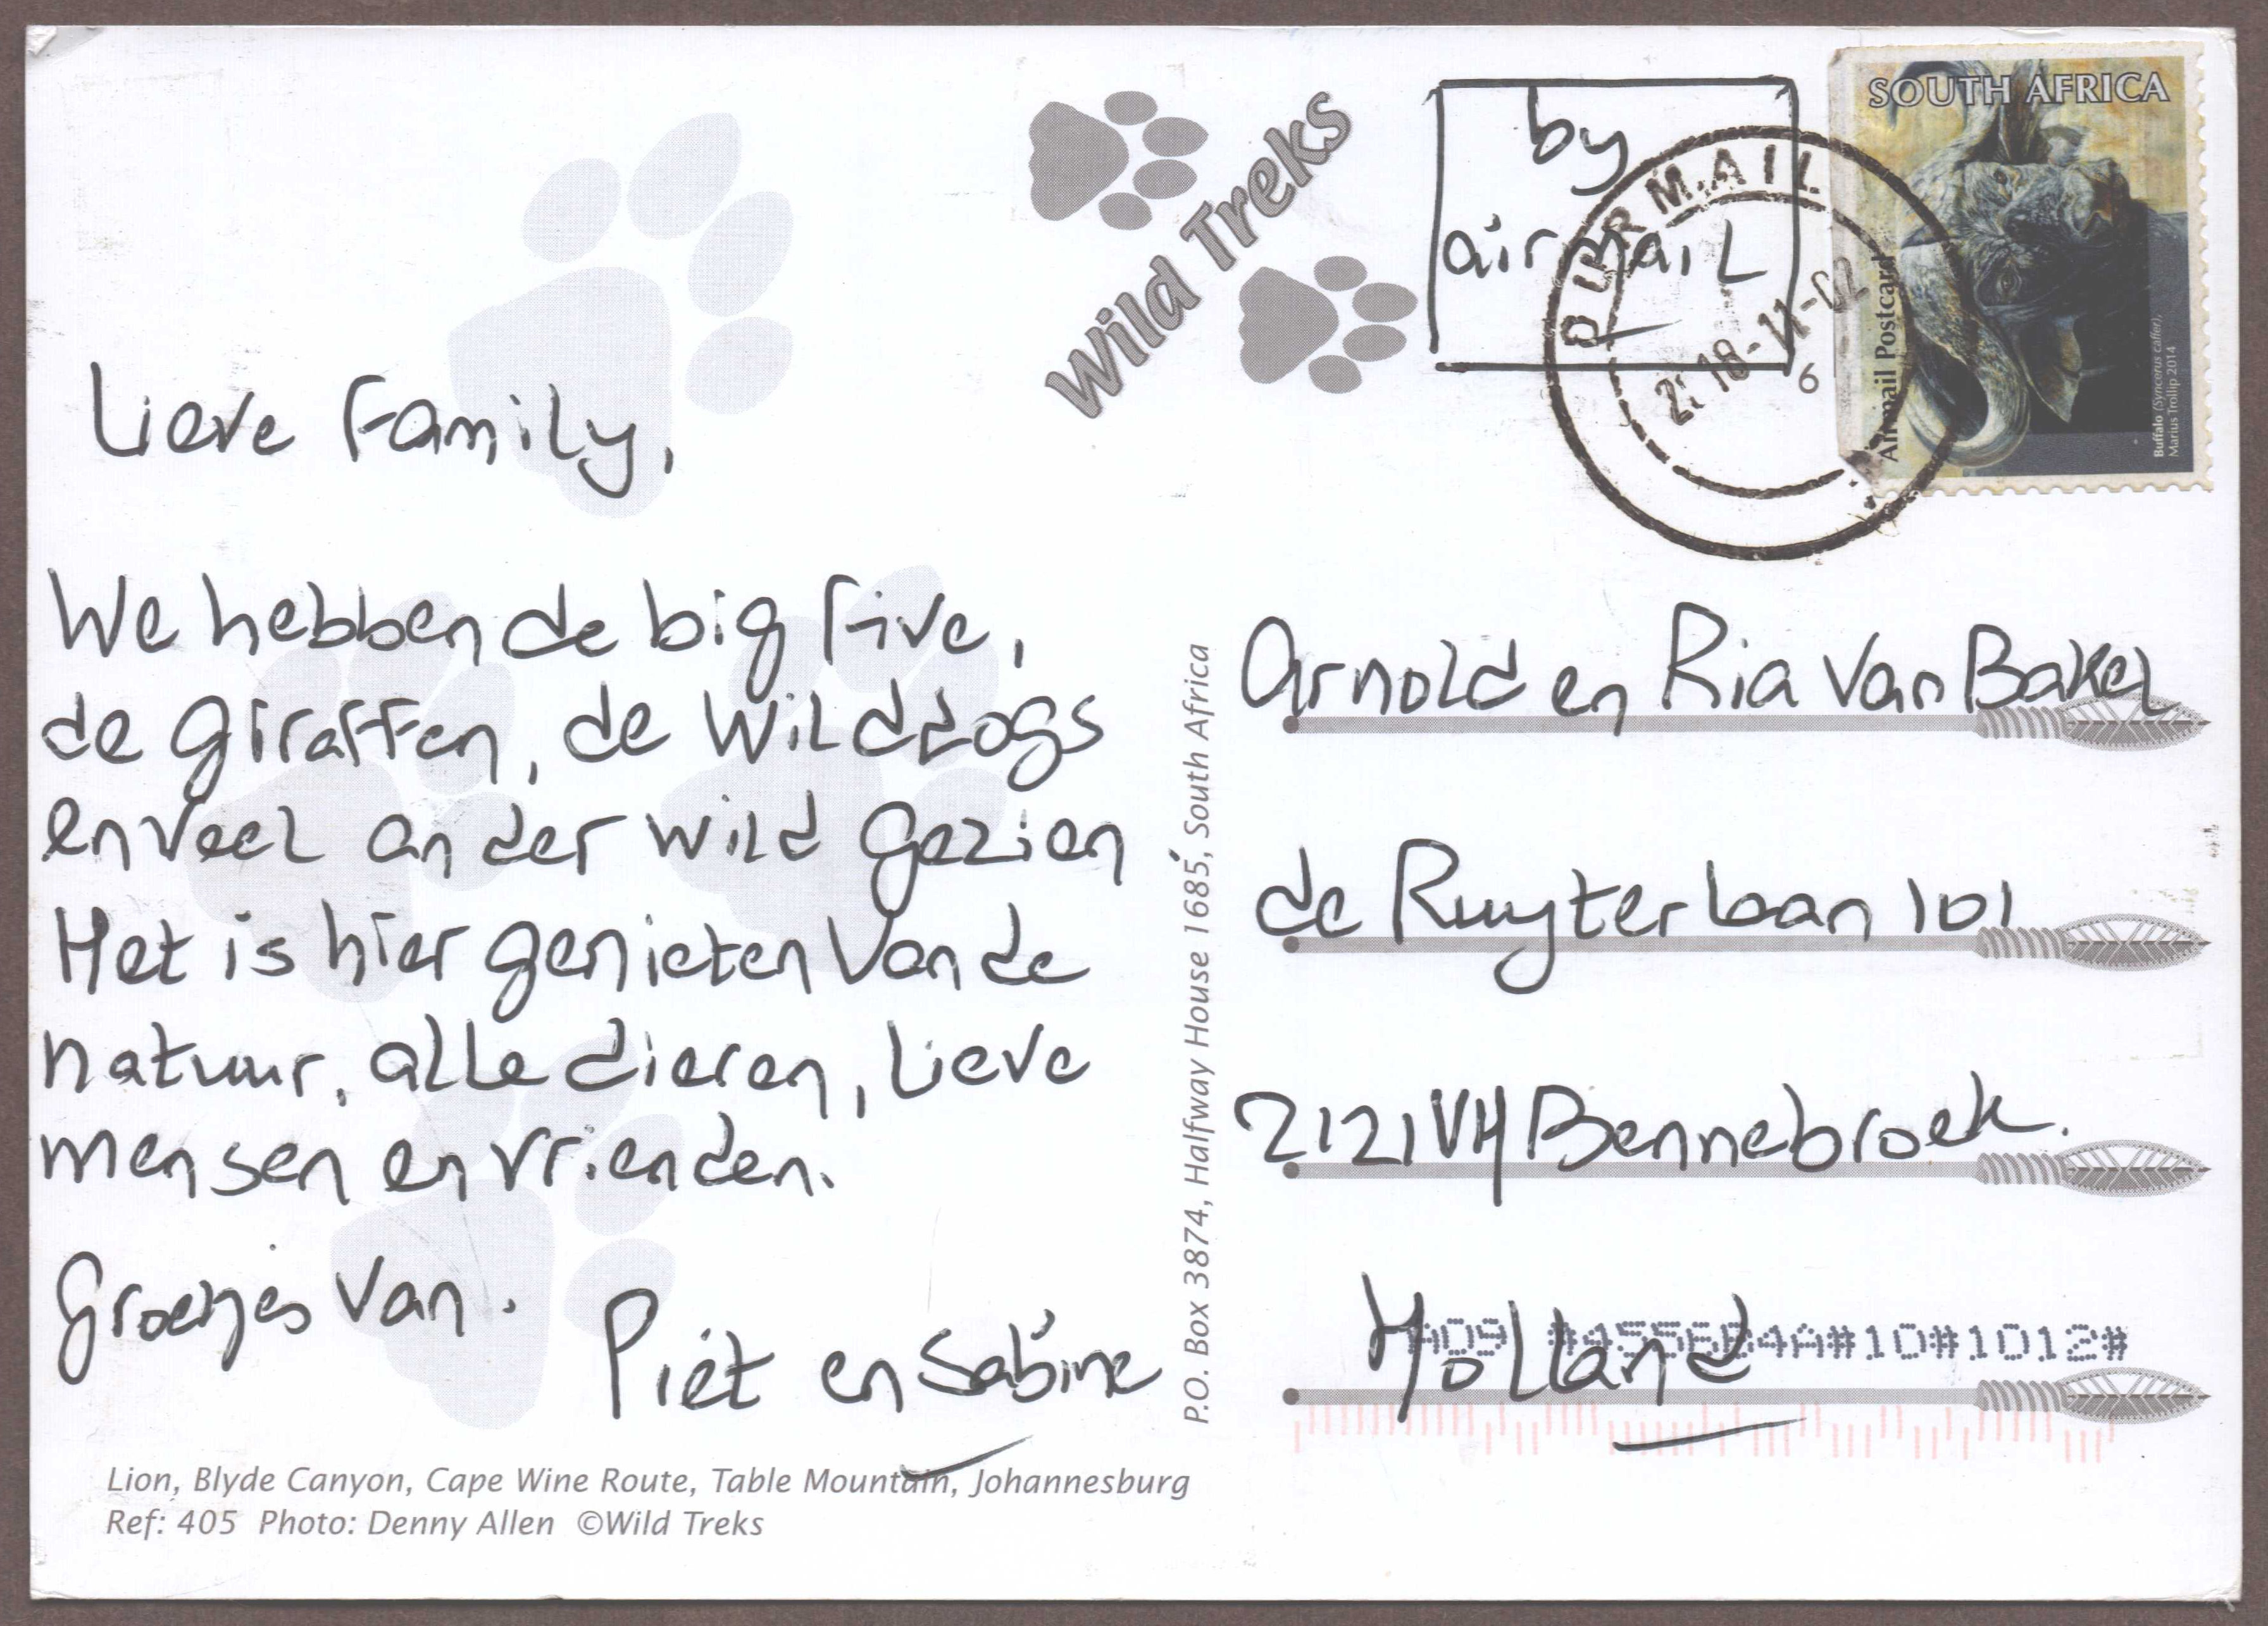 Wild Treks
by
airmail
SOUTH AFRICA
Airmail Postcard
Buffalo (Syncerus caffer),
Marius Trollip 2014
MAIL
18-11-02
6
Lieve Family,
We hebben de big five,
de giraffen, de wilddogs
en veel ander wild gezien
Het is hier genieten van de
natuur, alle dieren, lieve
mensen en vrienden.
Groetjes van.
Piet en Sabine
Lion, Blyde Canyon, Cape Wine Route, Table Mountain, Johannesburg
Ref: 405 Photo: Denny Allen ©Wild Treks
P.O. Box 3874, Halfway House 1685, South Africa
Arnold en Ria van Bakel
de Ruyterlaan 101
2121VH Bennebroek.
Holland
#10#1012#